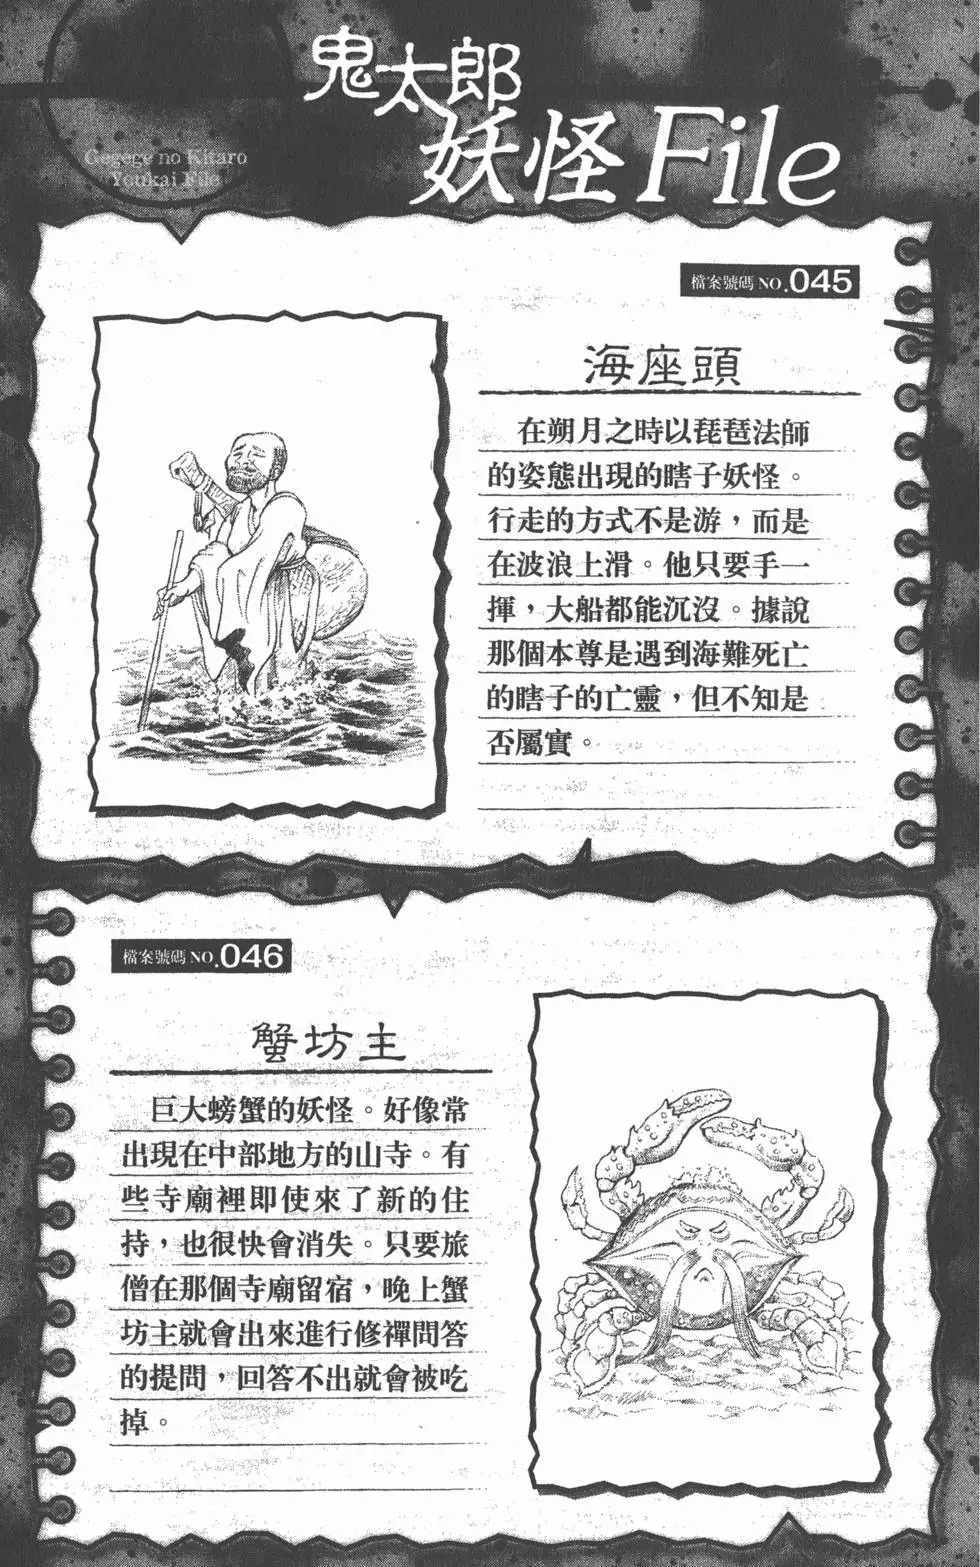 鬼太郎
妖怪File
Gegege no Kitaro
Youkai File
檔案號碼 NO.045
海座頭
在朔月之時以琵琶法師
的姿態出現的瞎子妖怪。
行走的方式不是游，而是
在波浪上滑。他只要手一
揮，大船都能沉沒。據說
那個本尊是遇到海難死亡
的瞎子的亡靈，但不知是
否屬實。
檔案號碼 NO.046
蟹坊主
巨大螃蟹的妖怪。好像常
出現在中部地方的山寺。有
些寺廟裡即使來了新的住
持，也很快會消失。只要旅
僧在那個寺廟留宿，晚上蟹
坊主就會出來進行修禪問答
的提問，回答不出就會被吃
掉。